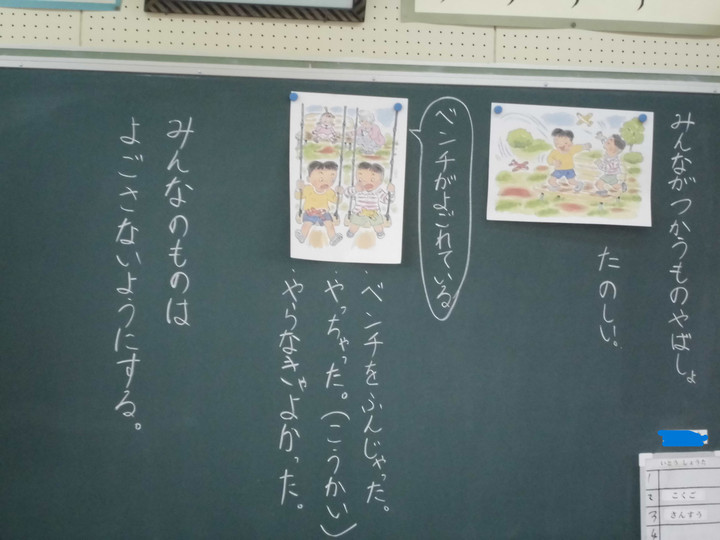 みんながつかうものやばしょ
たのしい。
ベンチがよごれている
・ベンチをふんじゃった。
・やっちゃった。(こうかい)
・やらなきゃよかった。
みんなのものは
よごさないようにする。
1
2 こくご
3 さんすう
4